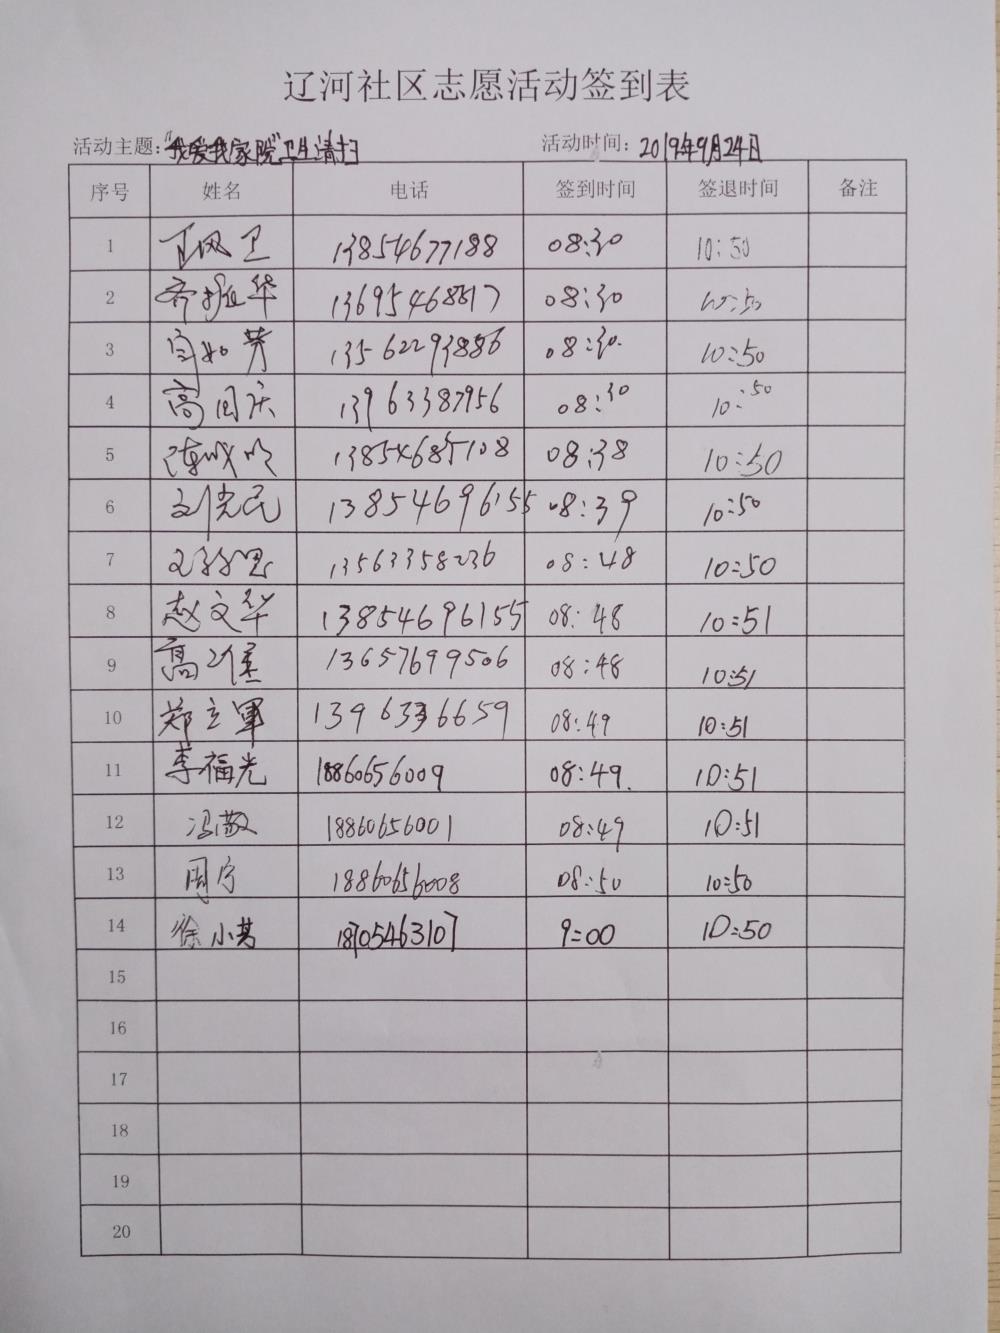 辽河社区志愿活动签到表
活动主题:“我爱我家院”卫生清扫 活动时间: 2019年9月24日
序号 姓名 电话 签到时间 签退时间 备注
1 卫 13854677188 08:30 10:50
2 齐 华 13695468817 08:30 10:50
3 芳 13562293886 08:30 10:50
4 高国庆 13963387956 08:30 10:50
5 陈 13854685108 08:38 10:50
6 刘光民 13854696155 08:39 10:50
7 13563358236 08:48 10:50
8 赵文华 13854696155 08:48 10:51
9 高 13657699506 08:48 10:51
10 郑立軍 1396336659 08:49 10:51
11 李福光 18860656009 08:49. 10:51
12 冯敬 18860656001 08:49 10:51
13 周宁 18860656008 08:50 10:50
14 徐小 18705463107 9:00 10:50
15
16
17
18
19
20